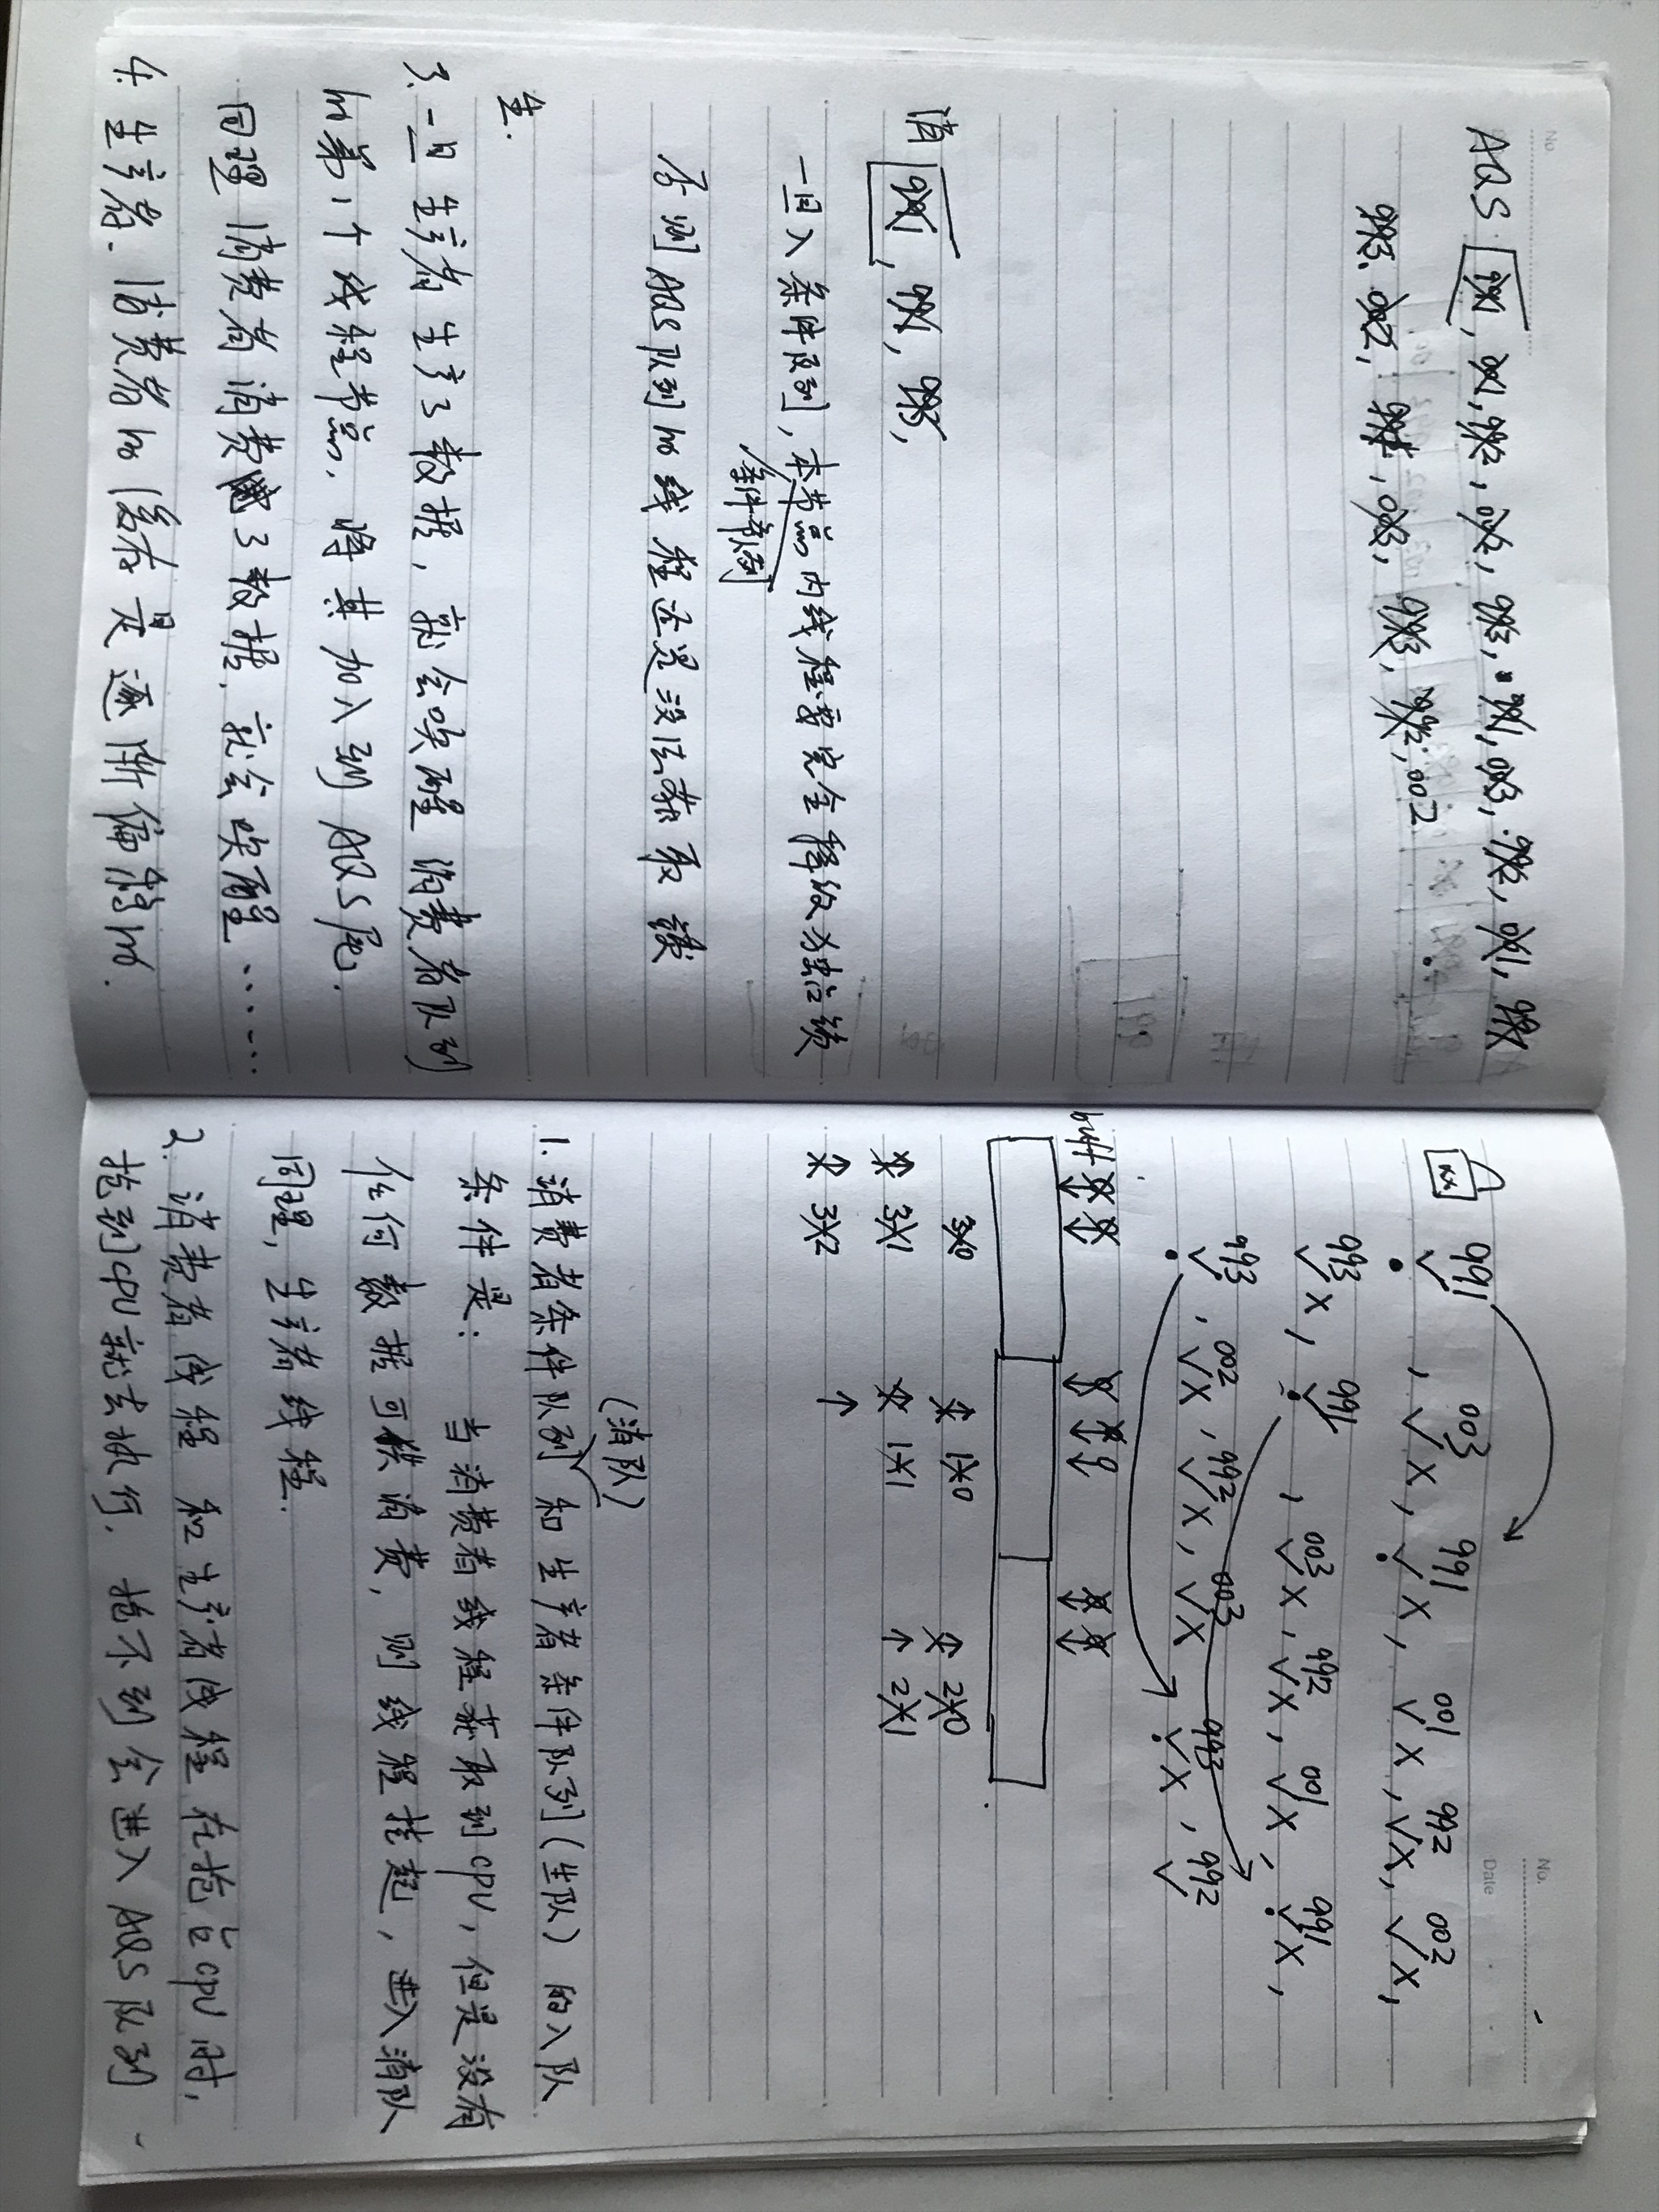 AQS 991, 001, 992, 002, 993, 991, 003, 992, 001, 991
993, 002, 991, 003, 993, 992, 002
消 991, 991, 993,
一旦入条件队列, 本节点内线程要完全释放独占锁
条件队列
否则AQS队列的线程还是没法获取锁
生.
3. 一旦生产者生产了数据, 就会唤醒消费者队列
的第1个线程节点, 将其加入到AQS尾.
同理消费者消费了数据, 就会唤醒......
4. 生产者. 消费者的 是逐渐偏移的.
No.
Date
991, 003, 991, 001, 992, 002,
993, 991, 003, 992, 001, 991,
993, 002, 992, 003, 993, 992
buff
(消队)
1. 消费者条件队列 和 生产者条件队列(生队) 的入队
条件是: 当消费者线程获取到cpu, 但是没有
任何数据可供消费, 则线程挂起, 进入消队
同理, 生产者线程.
2. 消费者线程 和生产者线程 在抢占cpu时,
抢到cpu就去执行. 抢不到会进入AQS队列